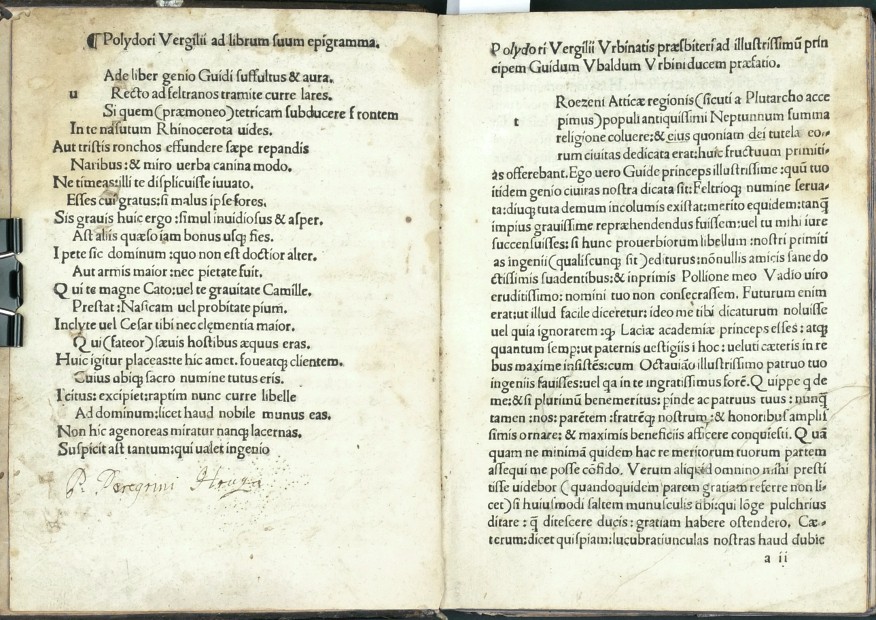 ¶Polydori Vergilii ad librum suum epigramma.
Ade liber genio Guidi suffultus & aura.
u Recto ad feltranos tramite curre lares.
Si quem(præmoneo)tetricam subducere frontem
In te nasutum Rhinocerota uides.
Aut tristis ronchos effundere sæpe repandis
Naribus:& miro uerba canina modo.
Ne timeas:illi te displicuisse iuuato.
Esses cui gratus:si malus ipse fores.
Sis grauis huic ergo:simul inuidiosus & asper.
Ast aliis quæso iam bonus usq; fies.
I pete sic dominum:quo non est doctior alter.
Aut armis maior:nec pietate fuit.
Qui te magne Cato:uel te grauitate Camille.
Prestat:Nasicam uel probitate pium.
Inclyte uel Cesar tibi nec clementia maior.
Qui(fateor)sæuis hostibus æquus eras.
Huic igitur placeas:te hic amet. foueatq; clientem.
Cuius ubiq; sacro numine tutus eris.
Icitus:excipiet:raptim nunc curre libelle
Ad dominum:licet haud nobile munus eas.
Non hic agenoreas miratur nanq; lacernas.
Suspicit ast tantum:qui ualet ingenio
P. Peregrini
Polydori Vergilii Vrbinatis præsbiteri ad illustrissimū prin
cipem Guidum Vbaldum Vrbini ducem præfatio.
Roezeni Atticæ regionis(sicuti a Plutarcho acce
t pimus)populi antiquissimi Neptunnum summa
religione coluere:& eius quoniam dei tutela eo-
rum ciuitas dedicata erat:huic fructuum primiti-
as offerebant.Ego uero Guide princeps illustrissime:quū tuo
itidem genio ciuitas nostra dicata sit:Feltrioq; numine serua-
ta:diuq; tuta demum incolumis existat:merito equidem:tanq̄
impius grauissime repræhendendus fuissem:uel tu mihi iure
succensuisses:si hunc prouerbiorum libellum:nostri primiti
as ingenii(qualiscunq; sit)editurus:nōnullis amicis sane do
ctissimis suadentibus:& inprimis Pollione meo Vadio uiro
eruditissimo:nomini tuo non consecrassem. Futurum enim
erat:ut illud facile diceretur:ideo me tibi dicaturum noluisse
uel quia ignorarem:q; Laciæ academiæ princeps esses:atq;
quantum semp:ut paternis uestigiis i hoc:ueluti cæteris in re
bus maxime insistēs:cum Octauiāo illustrissimo patruo tuo
ingeniis fauisses:uel qa in te ingratissimus forē.Quippe q de
me:& si plurimū benemeritus:pinde ac patruus tuus:nunq̄
tamen:nos:parētem:fratrēq; nostrum:& honoribus amplis
simis ornare:& maximis beneficiis afficere conquiesti. Quā
quam ne minimā quidem hac re meritorum tuorum partem
assequi me posse cōfido. Verum aliquid omnino mihi presti
tisse uidebor(quandoquidem parem gratiam referre non li-
cet)si huiusmodi saltem munusculis tibi:qui lōge pulchrius
ditare:q̄ ditescere ducis:gratiam habere ostendero. Cæ-
terum:dicet quispiam:lucubratiunculas nostras haud dubie
a ii